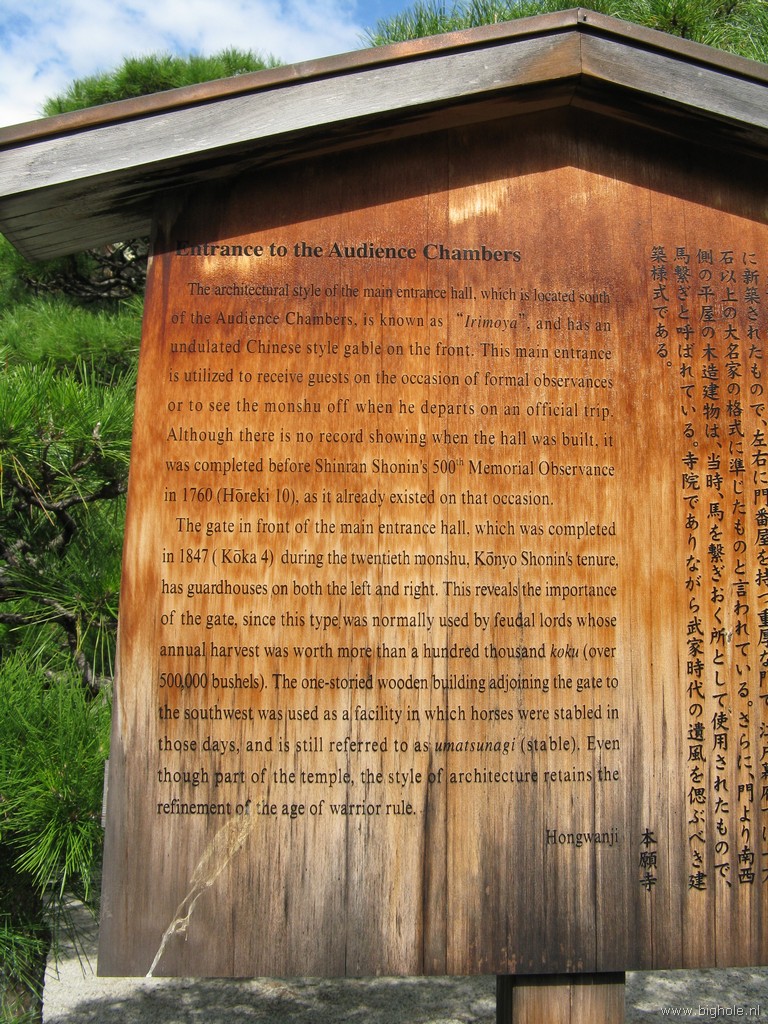 Entrance to the Audience Chambers
The architectural style of the main entrance hall, which is located south
of the Audience Chambers, is known as "Irimoya", and has an
undulated Chinese style gable on the front. This main entrance
is utilized to receive guests on the occasion of formal observances
or to see the monshu off when he departs on an official trip.
Although there is no record showing when the hall was built, it
was completed before Shinran Shonin's 500th Memorial Observance
in 1760 (Hōreki 10), as it already existed on that occasion.
The gate in front of the main entrance hall, which was completed
in 1847 ( Kōka 4) during the twentieth monshu, Kōnyo Shonin's tenure,
has guardhouses on both the left and right. This reveals the importance
of the gate, since this type was normally used by feudal lords whose
annual harvest was worth more than a hundred thousand koku (over
500,000 bushels). The one-storied wooden building adjoining the gate to
the southwest was used as a facility in which horses were stabled in
those days, and is still referred to as umatsunagi (stable). Even
though part of the temple, the style of architecture retains the
refinement of the age of warrior rule.
Hongwanji
に新築されたもので、左右に門番屋を持つ重厚な門で、
石以上の大名家の格式に準じたものと言われている。さらに、門より南西
側の平屋の木造建物は、当時、馬を繋ぎおく所として使用されたもので、
馬繋ぎと呼ばれている。寺院でありながら武家時代の遺風を偲ぶべき建
築様式である。
本願寺
www.bighole.nl